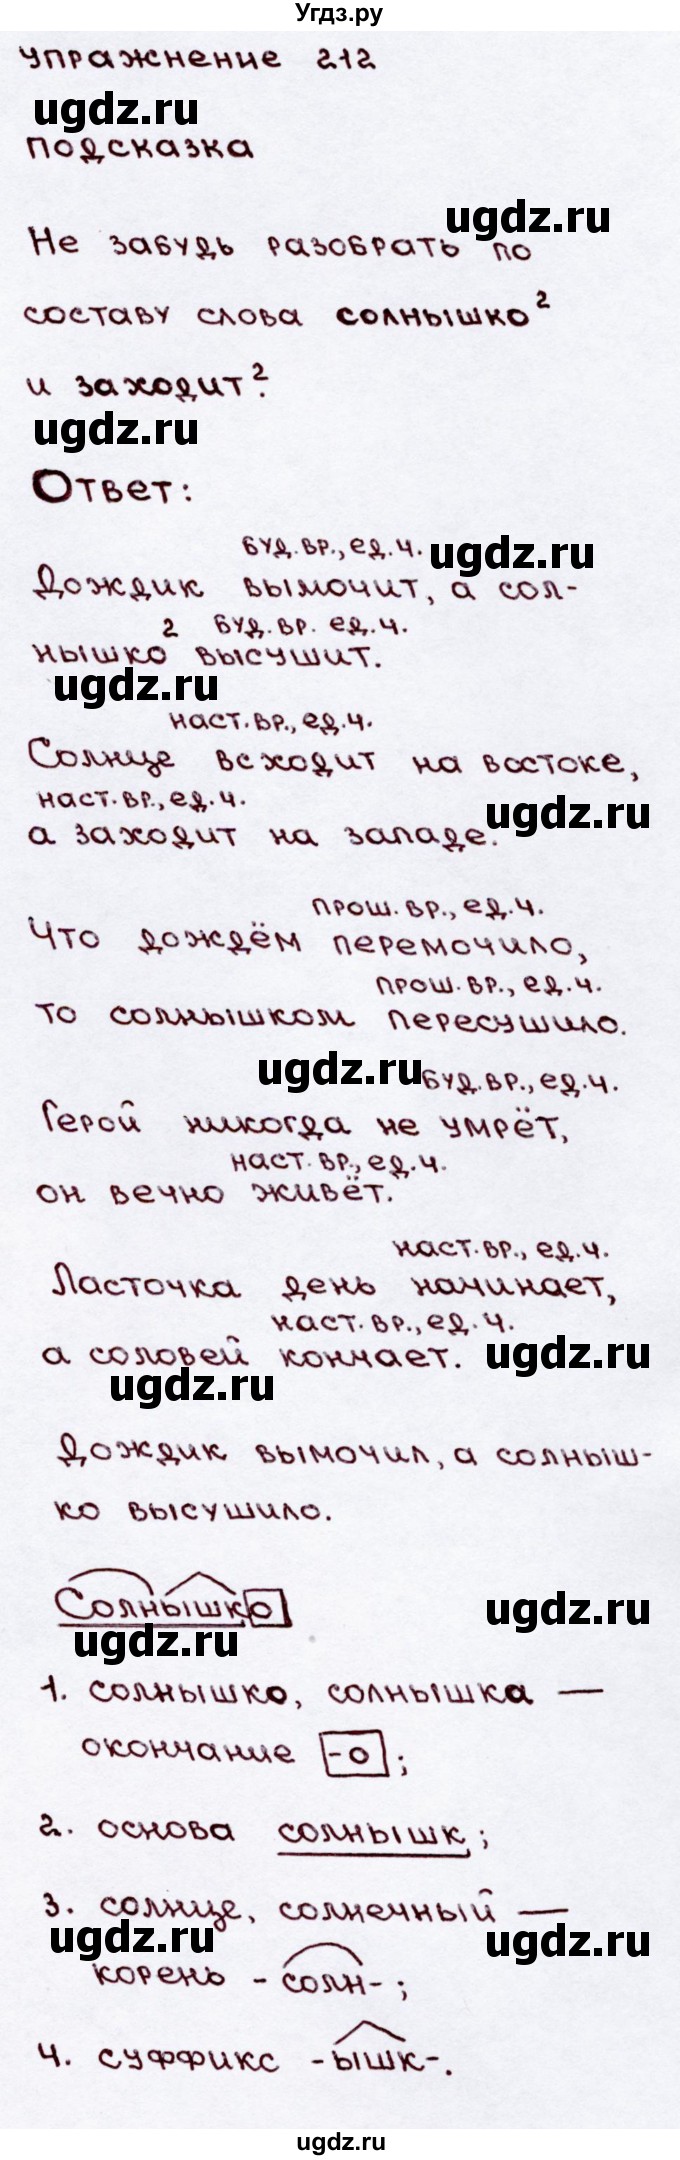 Угдз.ру
упражнение 212
ugdz.ru
подсказка
ugdz.ru
Не забудь разобрать по
составу слова солнышко²
и заходит².
ugdz.ru
Ответ:
буд.вр., ед.ч.
ugdz.ru
Дождик вымочит, а сол-
2 буд.вр. ед.ч.
нышко высушит.
ugdz.ru
наст.вр., ед.ч.
Солнце всходит на востоке,
наст.вр., ед.ч.
ugdz.ru
а заходит на западе.
прош.вр., ед.ч.
Что дождём перемочило,
прош.вр., ед.ч.
то солнышком пересушило.
ugdz.ru
буд.вр., ед.ч.
Герой никогда не умрёт,
наст.вр., ед.ч.
он вечно живёт.
наст.вр., ед.ч.
Ласточка день начинает,
наст.вр., ед.ч.
а соловей кончает.
ugdz.ru
ugdz.ru
Дождик вымочил, а солныш-
ко высушило.
Солнышко
ugdz.ru
ugdz.ru
1. солнышко, солнышка —
окончание -о ;
2. основа солнышк ;
3. солнце, солнечный —
ugdz.ru
ugdz.ru
корень -солн- ;
4. суффикс -ышк-.
ugdz.ru